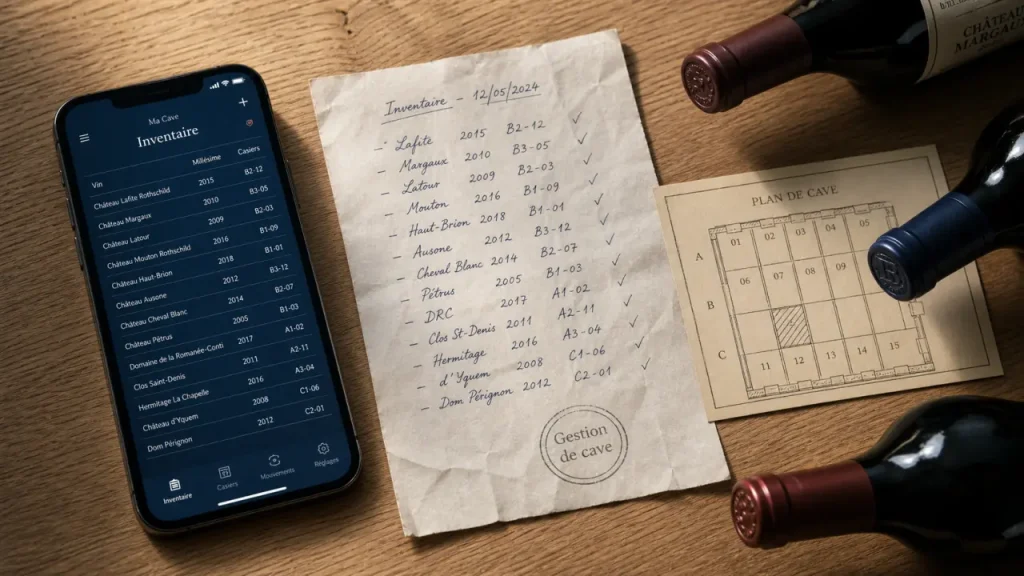 Ma Cave
Inventaire
Vin Millésime Casiers
Château Lafite Rothschild 2015 B2-12
Château Margaux 2010 B3-05
Château Latour 2009 B2-03
Château Mouton Rothschild 2016 B1-09
Château Haut-Brion 2018 B1-01
Château Ausone 2012 B3-12
Château Cheval Blanc 2014 B2-07
Château Pétrus 2005 B1-03
Domaine de la Romanée-Conti 2017 A1-02
Clos Saint-Denis 2011 A2-11
Hermitage La Chapelle 2016 A3-04
Château d'Yquem 2008 C1-06
Dom Pérignon 2012 C2-01
Inventaire Casiers Réglages
Inventaire - 12/05/2024
- Lafite 2015 B2-12 ✓
- Margaux 2010 B3-05 ✓
- Latour 2009 B2-03
- Mouton 2016 B1-09 ✓
- Haut-Brion 2018 B1-01
- Ausone 2012 B3-12 ✓
- Cheval Blanc 2014 B2-07
- Pétrus 2005 B1-03 ✓
- DRC 2017 A1-02
- Clos St-Denis 2011 A2-11 ✓
- Hermitage 2016 A3-04 ✓
- d'Yquem 2008 C1-06
- Dom Pérignon 2012 C2-01 ✓
Gestion
de cave
PLAN DE CAVE
A B C
01 02 03 04 05
06 07 08 09
11 12 13 14 15
CHÂTEAU
MARGAUX